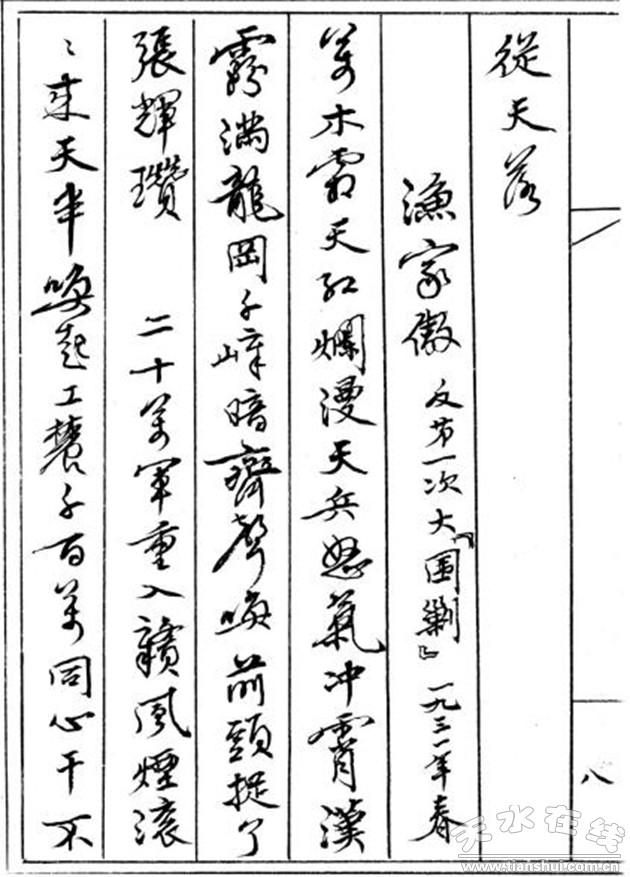 八
從天落
漁家傲 反第一次大『围剿』 一九三一年春
萬木霜天紅爛漫天兵怒氣冲霄漢
霧滿龍岡千嶂暗齊聲喚前頭捉了
張輝瓚 二十萬軍重入贛風煙滚
〻来天半喚起工農千百萬同心干不
天水在线
www.tianshui.com.cn